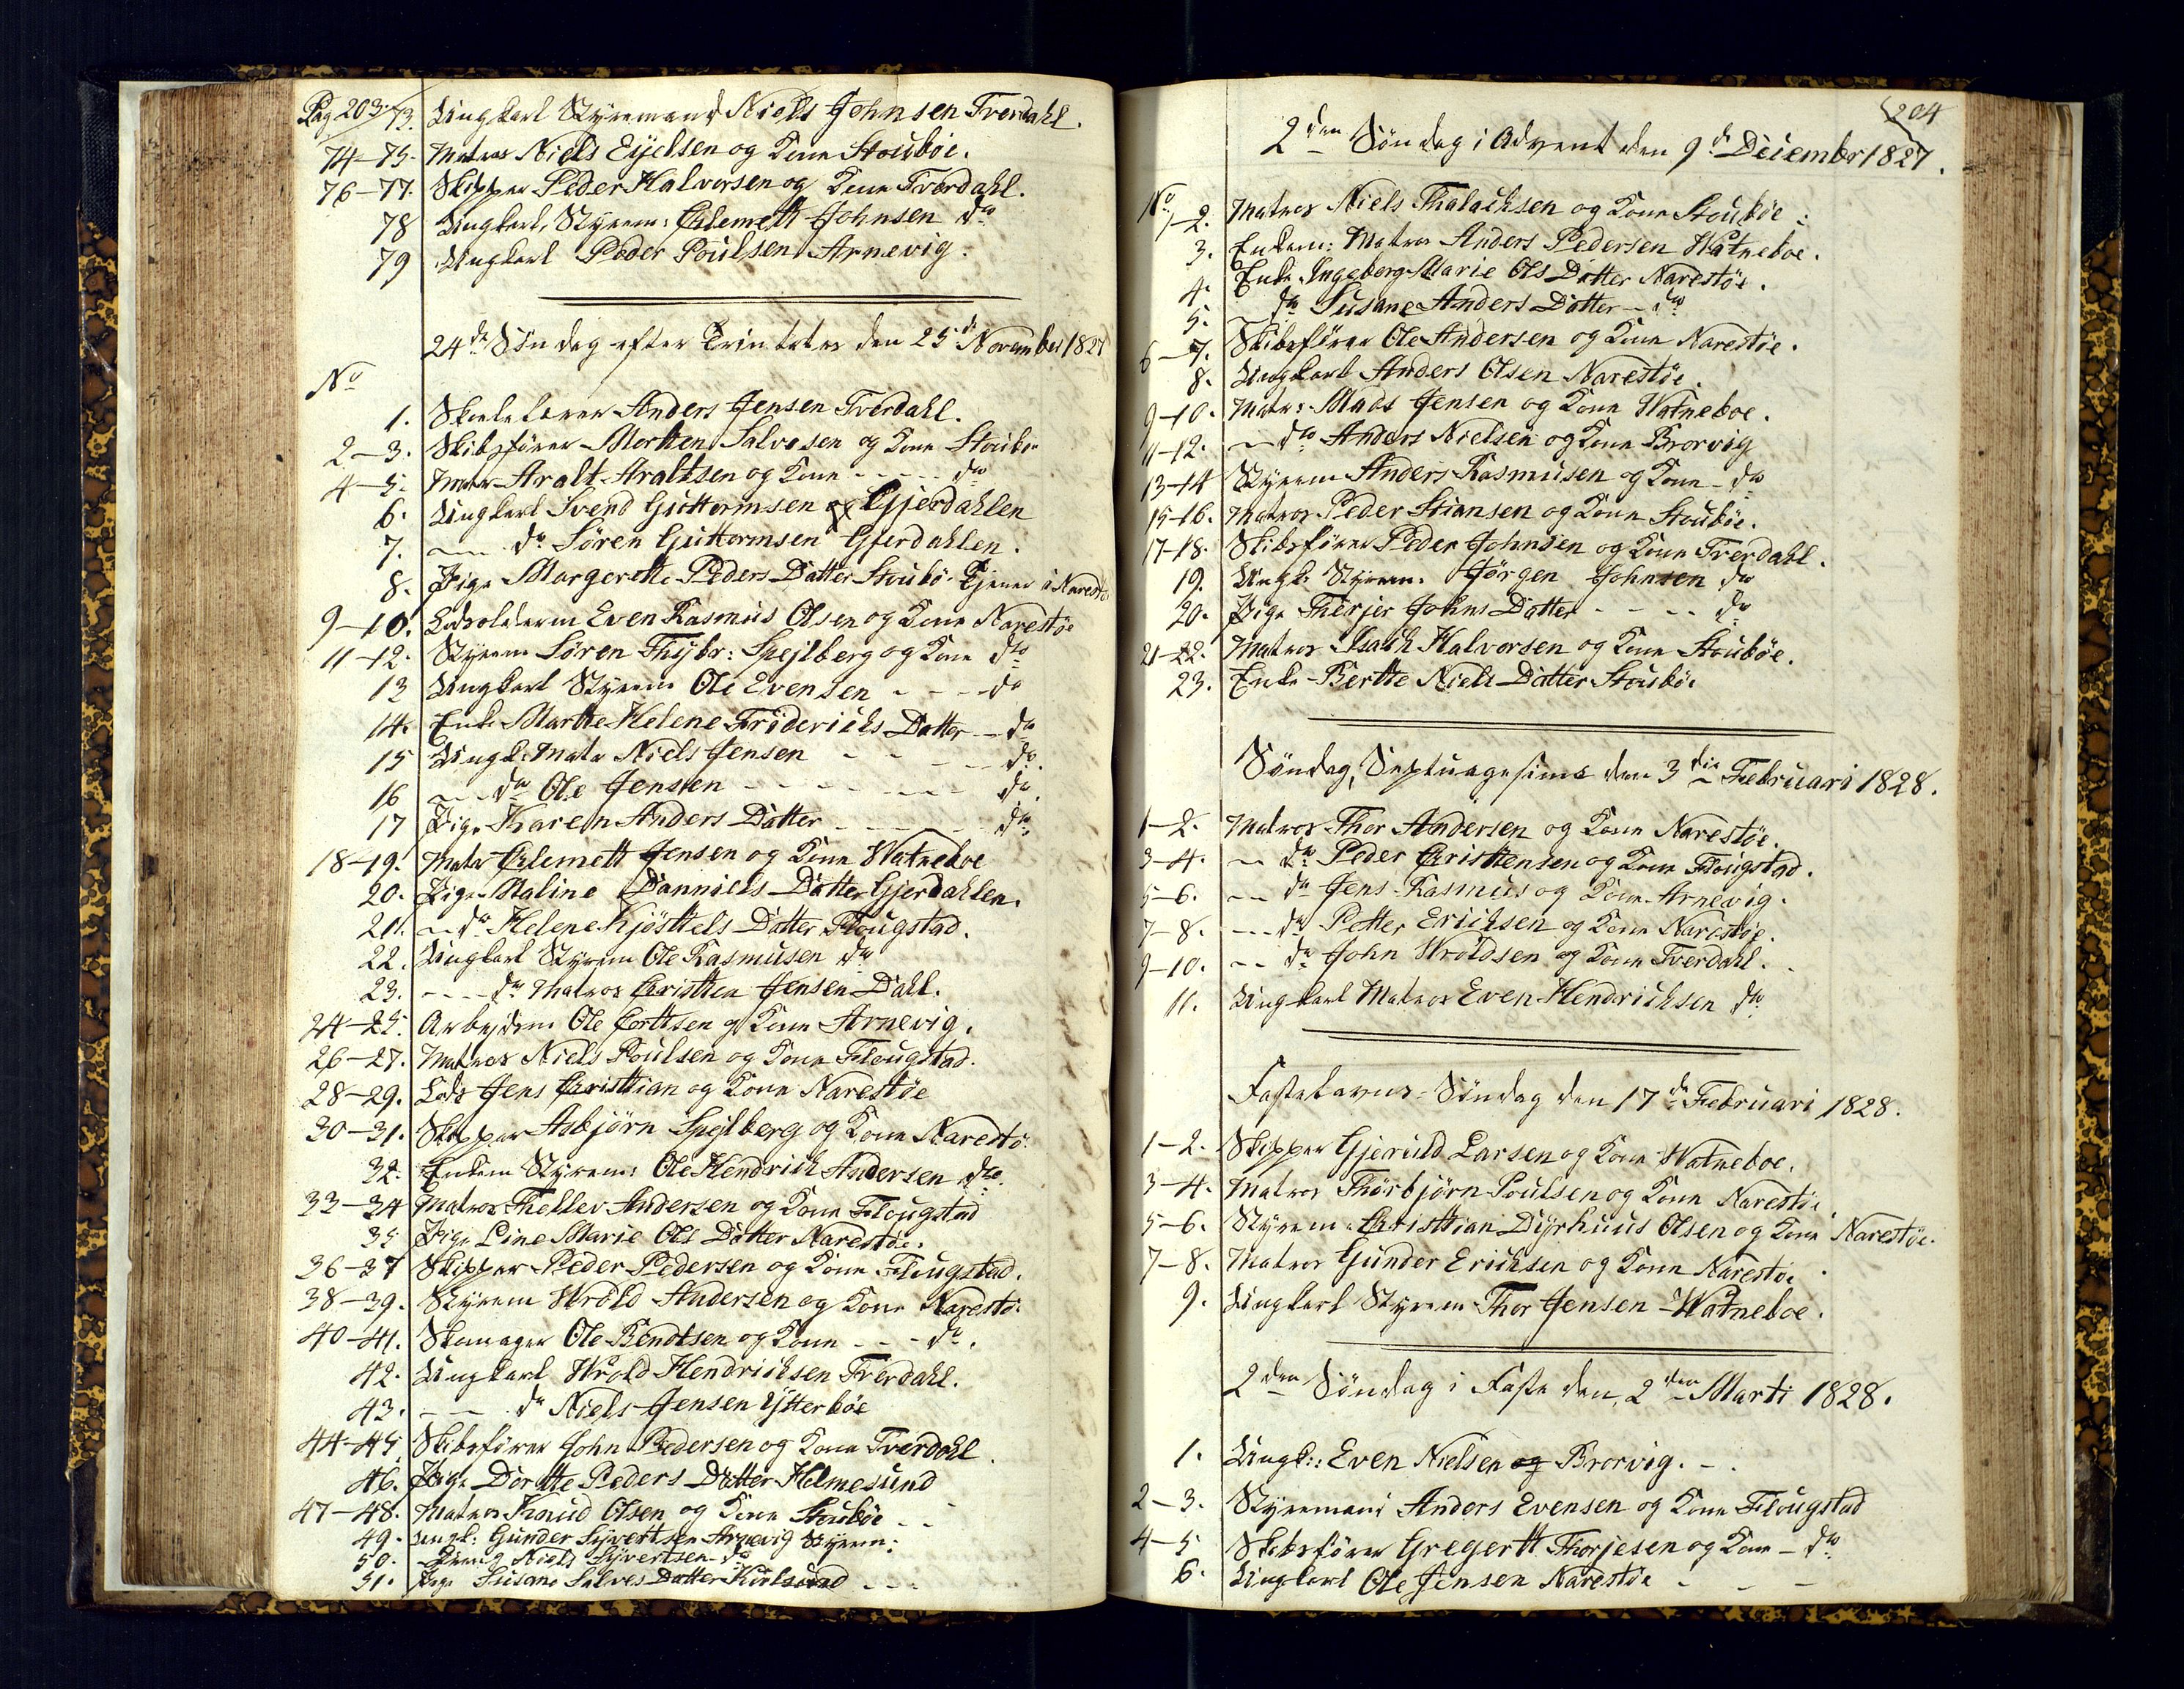 Pag 203. 73. Ungkarl Styrmand Niels Johnsen Tverdahl.
74-75. Matros Niels Eyelsen og Kone Stoubøe.
76-77. Skipper Peder Halvorsen og Kone Tverdahl.
78 Ungkarl, Styrem: Clemett Johnsen do
79 Ungkarl Peder Poulsen Arnevig.
24de Søndag efter Trinitatis den 25de November 1827
No
1. Skolelærer Anders Jensen Tverdahl.
2-3. Skibsfører Morthen Salvesen og Kone Stoubø
4-5. Matr Aralt Araltsen og Kone - - - - do
6. Ungkarl Svend Guttormsen og Gjerdahlen
7. — do Søren Guttormsen Gjerdahlen.
8. Pige Margerethe Peders Datter Stoubø. tjener i Narestø
9-10. Lodsolderm Even Rasmus Olsen og Kone Narestøe
11-12. Styrem Søren Thybr: Spejlberg og Kone do
13 Ungkarl Styrem Ole Evensen - - - do
14. Enke Marthe Helene Friderichs Datter - do
15 Ungk: Matr Niels Jensen - - - do.
16 — do Ole Jensen - - - - - do.
17 Pige Karen Anders Datter - - - - do
18-19. Matr Clemett Jensen og Kone Watneboe
20. Pige Maline Danniels Datter Gjerdahlen.
21. — do Helene Kjösttels Datter Flougstad.
22. Ungkarl Styrem Ole Rasmusen do
23. - - - - do Matros Christten Jensen Dahl.
24-25. Arbejdsm Ole Corttsen og Kone Arnevig.
26-27. Matros Niels Poulsen og Kone Flougstad.
28-29. Lods Jens Christtian og Kone Narestøe
30-31. Skipper Asbjörn Spejlberg og Kone Narestø.
32. Enkem Styrem: Ole Hendrich Andersen do.
33-34 Matros Thellev Andersen og Kone Flougstad
35 Pige Line Marie Ols Datter Narestøe.
36-37 Skipper Peder Pedersen og Kone Flougstad.
38-39. Styrem Wrold Andersen og Kone Narestø.
40-41. Skomager Ole Bendtsen og Kone - - do.
42. Ungkarl Wrold Hendrichsen Tverdahl.
43. - — do Niels Jensen Ytterbøe
44-45. Skibsfører John Pedersen og Kone Tverdahl.
46. Pige Dortte Peders Datter Helmesund
47-48. Matros Knud Olsen og Kone Stoubøe - -
49. Ungk: Gunder Syvertsen Arnevig Styrem:
50. Niels Syvertsen - do
51. Pige Susane Salves Datter - - -
204
2den Søndag i Advent den 9de December 1827.
No
1-2. Matros Niels Thalachsen og Kone Stoubøe.
3. Enkem: Matros Anders Pedersen Watneboe.
4. Enke Ingeborg Marie Ols Datter Narestøe.
5. — do Susane Anders Datter - do
6-7. Skibsfører Ole Andersen og Kone Narestøe.
8. Ungkarl Anders Olsen Narestøe.
9-10. Matr: Mads Jensen og Kone Watneboe.
11-12. — do Anders Nielsen og Kone Brorvig
13-14 Styrem Anders Rasmusen og Kone - do
15-16. Matros Peder Stiansen og Kone Stoubøe.
17-18. Skibsfører Peder Johnsen og Kone Tverdahl.
19. Ungk: Styrem: Jörgen Johnsen do
20. Pige Therjer Johns Datter - - - do
21-22. Matros Isach Halvorsen og Kone Stoubøe.
23. Enke Bertte Niels Datter Stoubøe
Søndag, Septuagesima den 3die Februari 1828.
1-2. Matros Thor Andersen og Kone Narestøe.
3-4. — do Peder Christtensen og Kone Flougstad.
5-6. — do Jens Rasmus og Kone Arnevig.
7-8. - - - do Petter Erichsen og Kone Narestøe.
9-10. - - do John Wroldsen og Kone Tverdahl.
11. Ungkarl Matros Even Hendrichsen do
Fastelavns-Søndag den 17de Februari 1828.
1-2. Skipper Gjeruld Larsen og Kone Watneboe.
3-4. Matros Thorbjörn Poulsen og Kone Narestøe
5-6. Styrem: Christtian Dyrhuus Olsen og Kone Narestøe.
7-8. Matros Gunder Erichsen og Kone Narestøe
9. Ungkarl Styrem Thor Jensen - Watneboe.
2den Søndag i Faste den 2den Marti 1828.
1. Ungk: Even Nielsen og Brorvig. - .
2-3. Styrmand Anders Evensen og Kone Flougstad
4-5 Skibsfører Gregertt Thorjesen og Kone - do
6. Ungkarl Ole Jensen Narestøe - - -